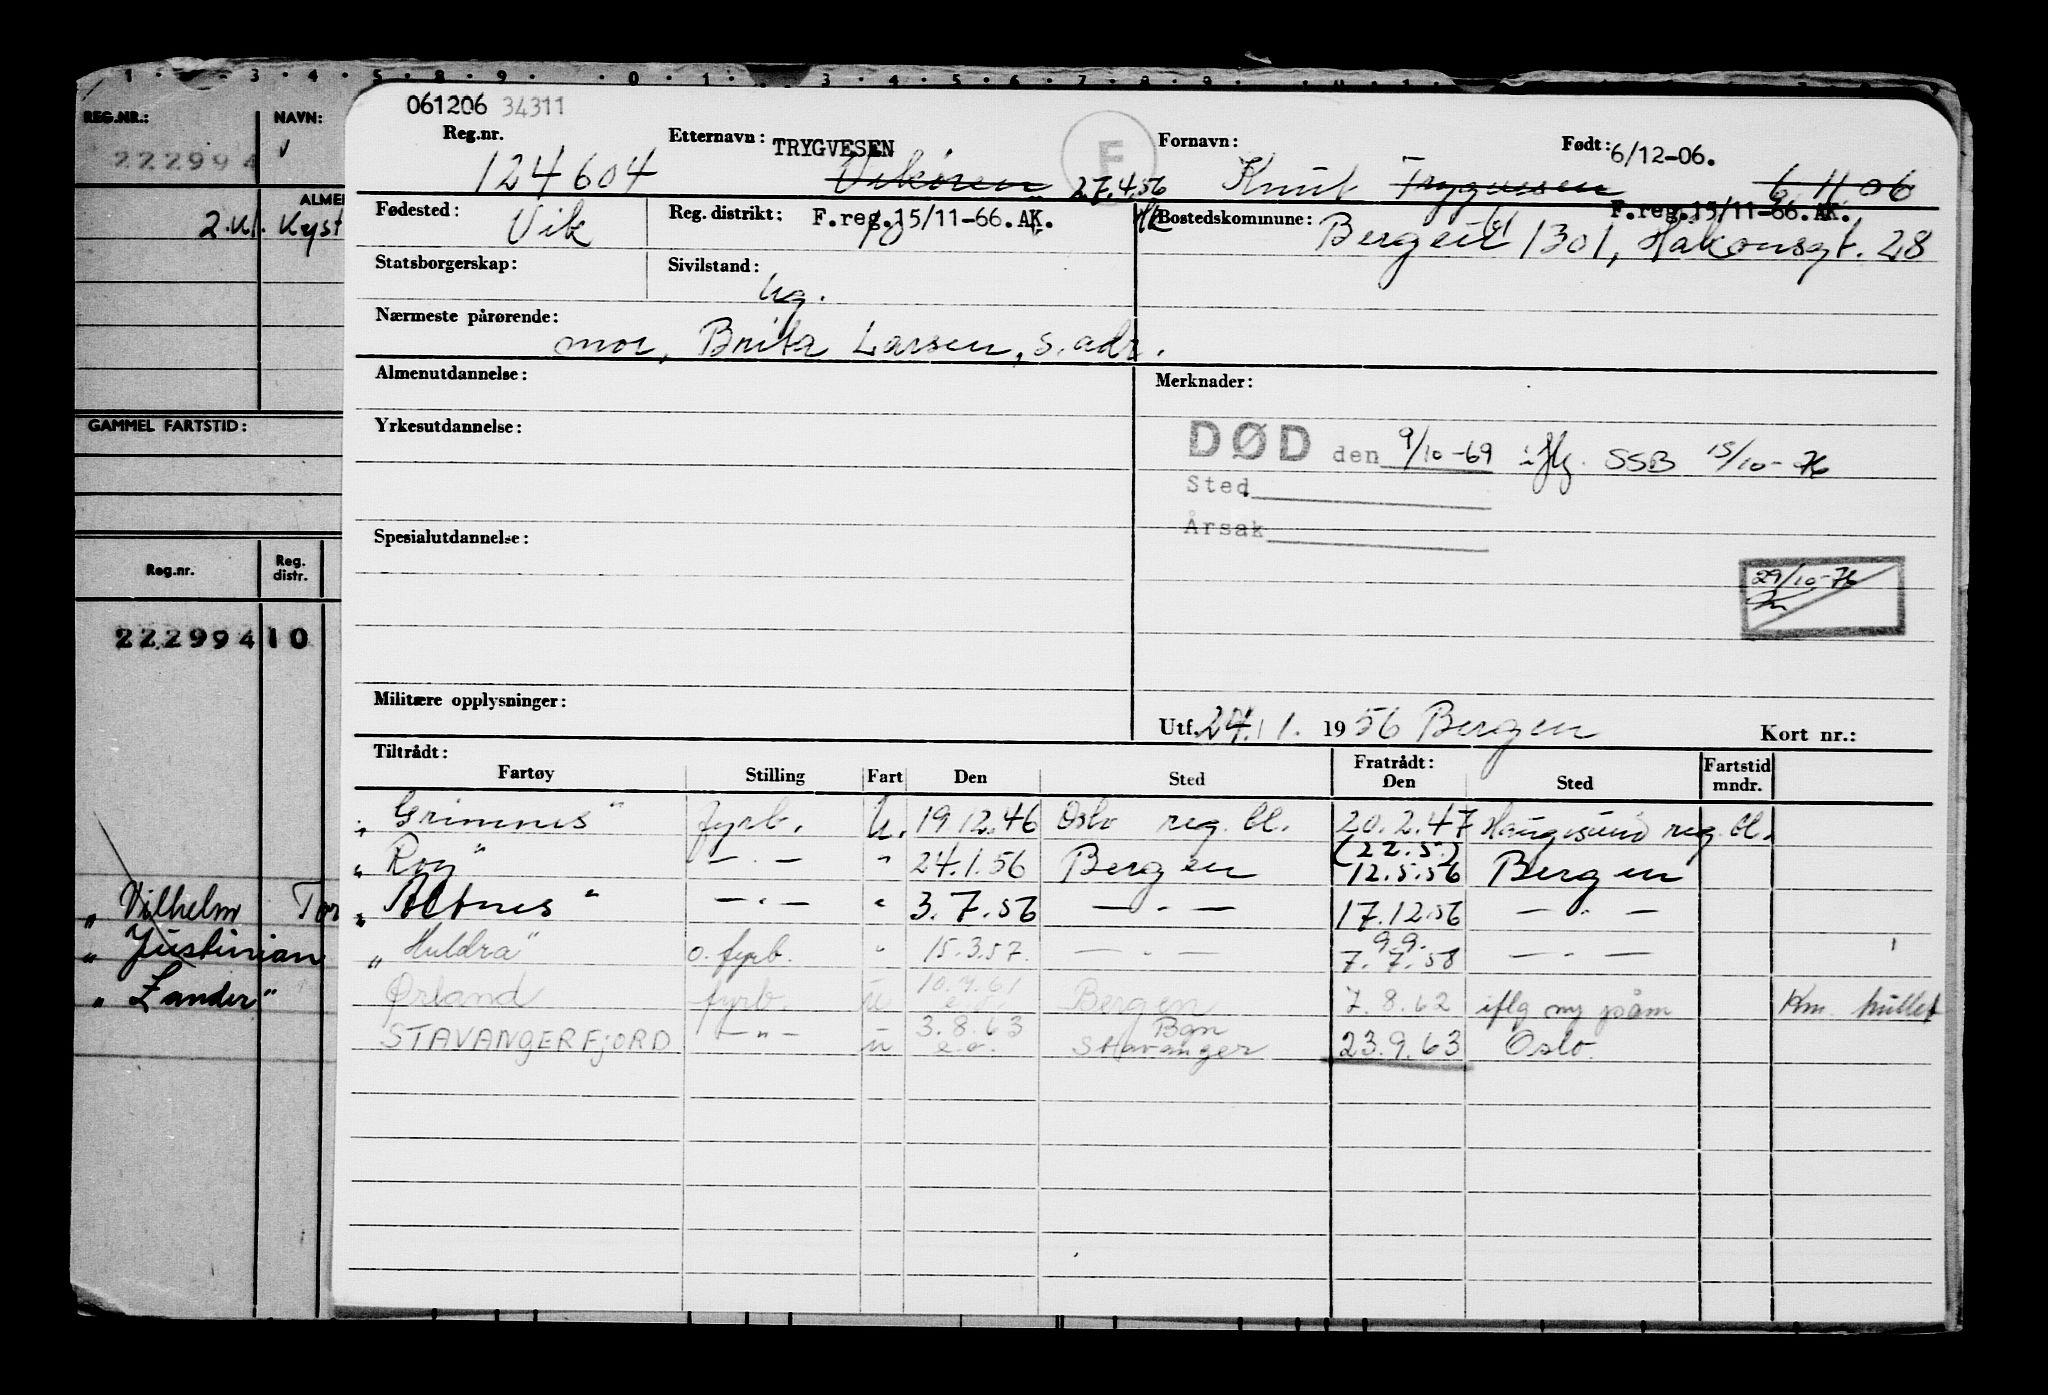 1 · 3 · 4 · 5 · 8 · 9 · 0 · 1 · 3 · 4 · 5 · 6 · 7 · 8 · 9
REG.NR.: NAVN:
222994
ALME
2.kl. Kyst
GAMMEL FARTSTID:
Reg.nr. Reg. distr.
222994 10
„ Vilhelm Tor
„ Justinian
„ Zander"
061206 34311
Reg.nr. 124604
Etternavn: TRYGVESEN
Vikøren 27.4.56
F
Fornavn: Knut Trygvesen
Født: 6/12-06.
6 11 06
Fødested: Vik
Reg. distrikt: 10 F.reg.15/11-66.AK.
F.reg.15/11-66.AK.
Bostedskommune: Bergen 1301, Håkonsgt. 28
Statsborgerskap:
Sivilstand: ug.
Nærmeste pårørende: mor, Brita Larsen, s. adr.
Almenutdannelse:
Merknader:
Yrkesutdannelse:
DØD den 9/10-69 iflg. SSB 15/10-76
Sted
Årsak
Spesialutdannelse:
29/10-76
Militære opplysninger:
Utf. 24. 1. 1956 Bergen Kort nr.:
Tiltrådt: Fratrådt:
Fartøy Stilling Fart Den Sted Den Sted Fartstid mndr.
„Grimnes" fyrb. U. 19 12.46 Oslo reg. bl. 20.2.47 Haugesund reg. bl.
„Roy" — . — " 24.1.56 Bergen (22.5.) 12.5.56 Bergen
„Altnes" — . — " 3.7.56 — . — 17.12.56 — . —
„Huldra" o. fyrb. " 15.3.57. — . — 9.9. 7.7.58 — . —
Ørland fyrb. u 10.4.61 e.o. Bergen 7.8.62 iflg ny påm Km. hullet
STAVANGERFJORD — " — u 3.8.63 e.o. Bgn Stavanger 23.9.63 Oslo.